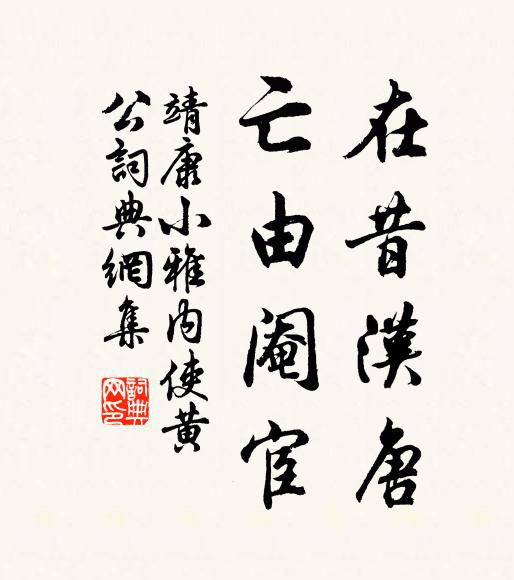 在昔漢唐
亡由閹宦
靖康小雅內使黃
公詞典網集
詞典網印